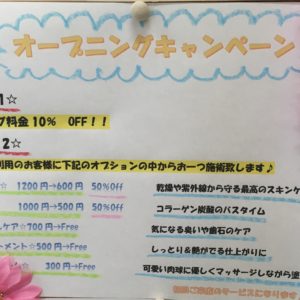 オープニングキャンペーン
1☆
グ料金10% OFF!!
2☆
利用のお客様に下記のオプションの中からお一つ施術致します♪
☆ 1200円→600円 50%Off 乾燥や紫外線から守る最高のスキンケ
1000円→500円 50%Off コラーゲン炭酸のバスタイム
ケア☆700円→Free 気になる臭いや歯石のケア
ートメント☆550円→Free しっとり&艶がでる仕上がりに
☆ 300円→Free 可愛い肉球に優しくマッサージしながら塗
のサービスになります